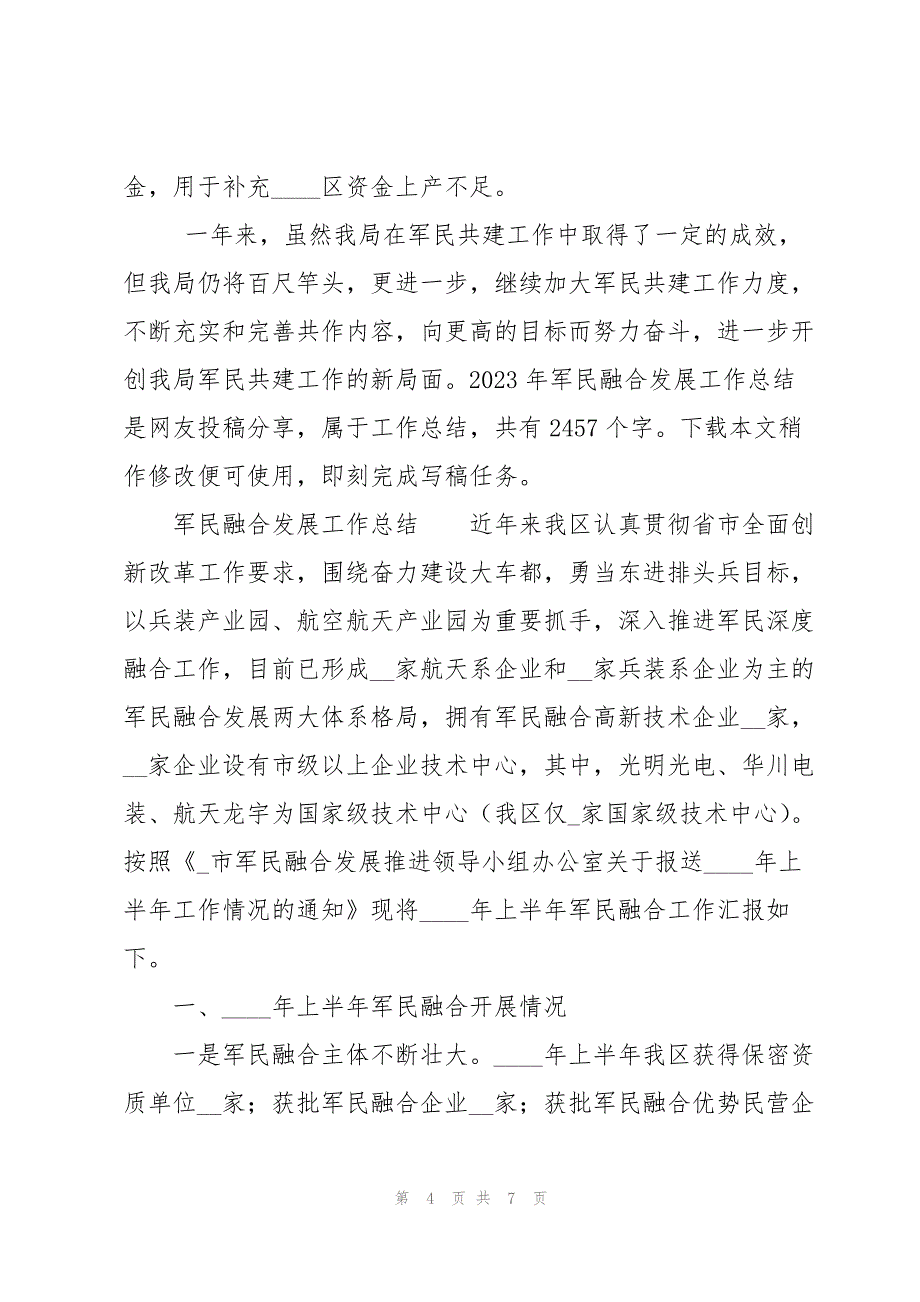 金，用于补充____区资金上产不足。
一年来，虽然我局在军民共建工作中取得了一定的成效，
但我局仍将百尺竿头，更进一步，继续加大军民共建工作力度，
不断充实和完善共作内容，向更高的目标而努力奋斗，进一步开
创我局军民共建工作的新局面。2023 年军民融合发展工作总结
是网友投稿分享，属于工作总结，共有 2457 个字。下载本文稍
作修改便可使用，即刻完成写稿任务。
军民融合发展工作总结　　近年来我区认真贯彻省市全面创
新改革工作要求，围绕奋力建设大车都，勇当东进排头兵目标，
以兵装产业园、航空航天产业园为重要抓手，深入推进军民深度
融合工作，目前已形成__家航天系企业和__家兵装系企业为主的
军民融合发展两大体系格局，拥有军民融合高新技术企业__家，
__家企业设有市级以上企业技术中心，其中，光明光电、华川电
装、航天龙宇为国家级技术中心（我区仅_家国家级技术中心）。
按照《_市军民融合发展推进领导小组办公室关于报送____年上
半年工作情况的通知》现将____年上半年军民融合工作汇报如
下。
一、____年上半年军民融合开展情况
一是军民融合主体不断壮大。____年上半年我区获得保密资
质单位__家；获批军民融合企业__家；获批军民融合优势民营企
第 4 页 共 7 页